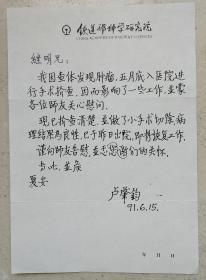 铁道部科学研究院
CHINA ACADEMY OF RAILWAY SCIENCES
继明兄：
我因查体发现肿瘤，五月底入医院进
行手术检查，因而影响了一些工作，并蒙
各位师友关心慰问。
现已检查清楚，并做了小手术切除，病
理结果为良性，已于昨日出院，即将恢复工作。
谨向师友告慰，并志您谢们的关怀。
专此，并候
夏安
卢肇钧
91.6.15.
年 月 日